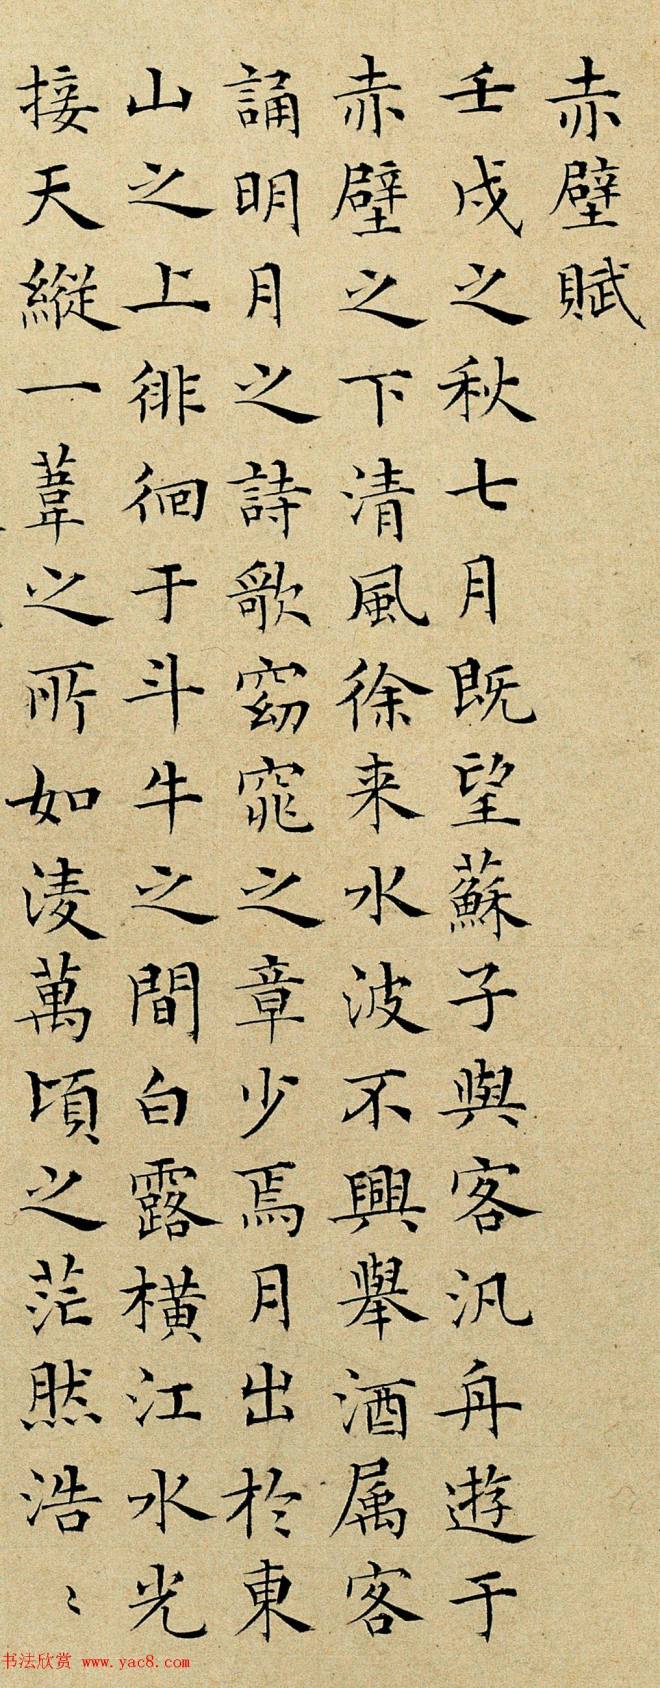 赤壁賦
壬戌之秋七月既望蘇子與客汎舟遊于
赤壁之下清風徐来水波不興舉酒属客
誦明月之詩歌窈窕之章少焉月出於東
山之上徘徊于斗牛之間白露橫江水光
接天縱一葦之所如淩萬頃之茫然浩〻
书法欣赏 www.yac8.com